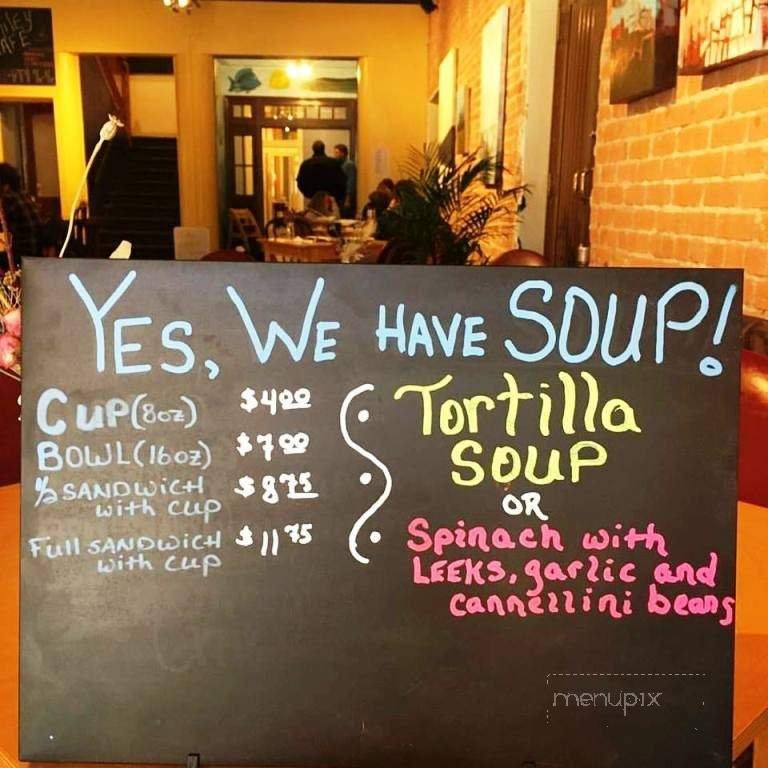 YES, WE HAVE SOUP!
CUP (8oz) $4.00
BOWL (16oz) $7.00
1/2 SANDWICH with cup $8.75
Full SANDWICH with cup $11.75
Tortilla
SOUP
OR
Spinach with
LEEKS, garlic and
cannellini beans
menupix